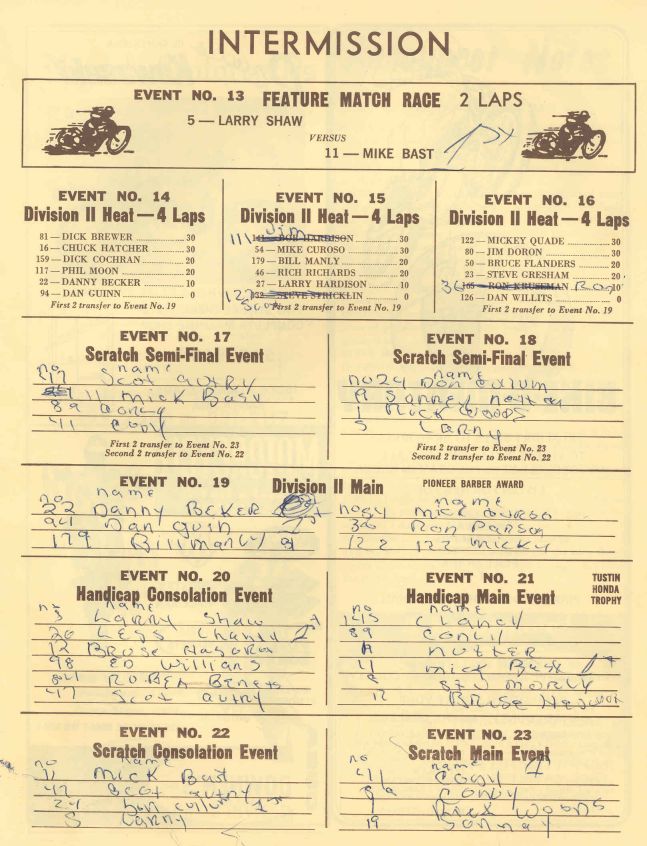 INTERMISSION
EVENT NO. 13 FEATURE MATCH RACE 2 LAPS
5 — LARRY SHAW
VERSUS
11 — MIKE BAST 1st
EVENT NO. 14
Division II Heat — 4 Laps
81 — DICK BREWER 30
16 — CHUCK HATCHER 30
159 — DICK COCHRAN 20
117 — PHIL MOON 20
22 — DANNY BECKER 10
94 — DAN GUINN 0
First 2 transfer to Event No. 19
EVENT NO. 15
Division II Heat — 4 Laps
111 Jim
141 — BOB HARDISON 30
54 — MIKE CUROSO 30
179 — BILL MANLY 20
46 — RICH RICHARDS 20
27 — LARRY HARDISON 10
132 — STEVE STRICKLIN 0
First 2 transfer to Event No. 19
EVENT NO. 16
Division II Heat — 4 Laps
122 — MICKEY QUADE 30
80 — JIM DORON 30
50 — BRUCE FLANDERS 20
23 — STEVE GRESHAM 20
36 165 — RON KRUSEMAN Ron 10
126 — DAN WILLITS 0
First 2 transfer to Event No. 19
EVENT NO. 17
Scratch Semi-Final Event
no name
47 Scot autry
11 Mick Bast
89 Conly
41 Cody
First 2 transfer to Event No. 23
Second 2 transfer to Event No. 22
EVENT NO. 18
Scratch Semi-Final Event
name
no 24 Don
1 Rick Woods
5 Larry
First 2 transfer to Event No. 23
Second 2 transfer to Event No. 22
EVENT NO. 19 Division II Main PIONEER BARBER AWARD
no name
22 Danny BEKER
94 Dan Guin 1st
179 Bill manly
no name
54 Mick
36 Ron Parson
122 122 Micky
EVENT NO. 20
Handicap Consolation Event
no name
5 Larry Shaw
12 Bruse
98 ED Willians
47 Scot autry
EVENT NO. 21 TUSTIN
Handicap Main Event HONDA
TROPHY
no name
89 Conly
11 mick Bast 1st
12 Bruse
EVENT NO. 22
Scratch Consolation Event
no name
11 Mick Bast
47 Scot autry
24 Don 1st
5 Larry
EVENT NO. 23
Scratch Main Event
no name 1
41 Cody
Rick Woods
19 Sonnay